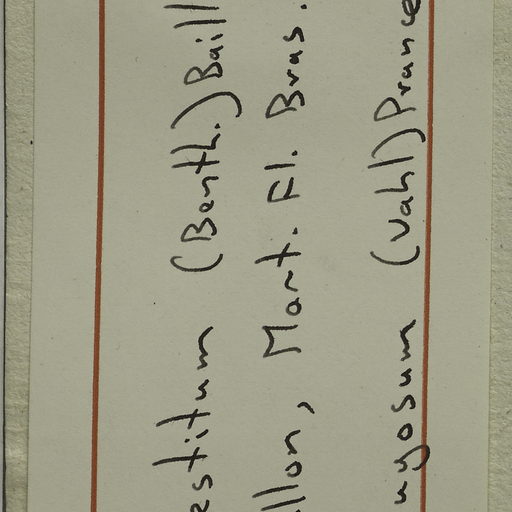 estitum (Benth.) Baill
llon, Mart. Fl. Bras.
uyosum (Vahl) Prance